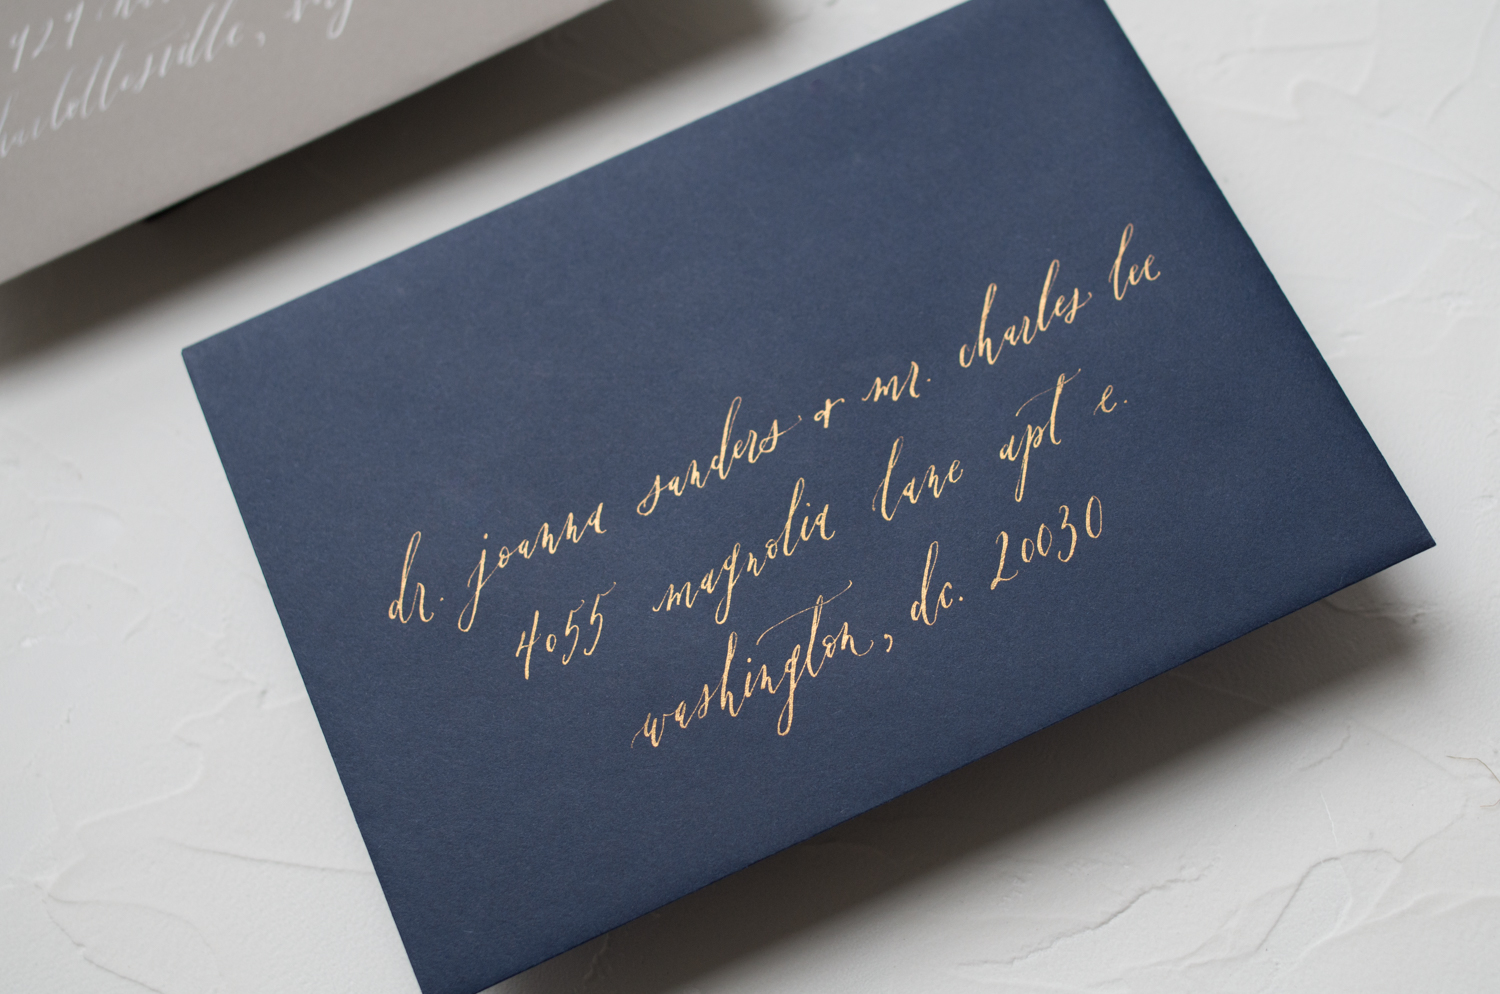 929
charlottesville,
dr. joanna sanders & mr. charles lee
4055 magnolia lane apt e.
washington, dc. 20030